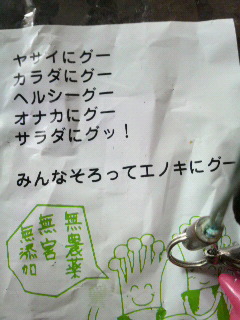 ヤサイにグー
カラダにグー
ヘルシーグー
オナカにグー
サラダにグッ！
みんなそろってエノキにグー
無農薬
無害
無添加